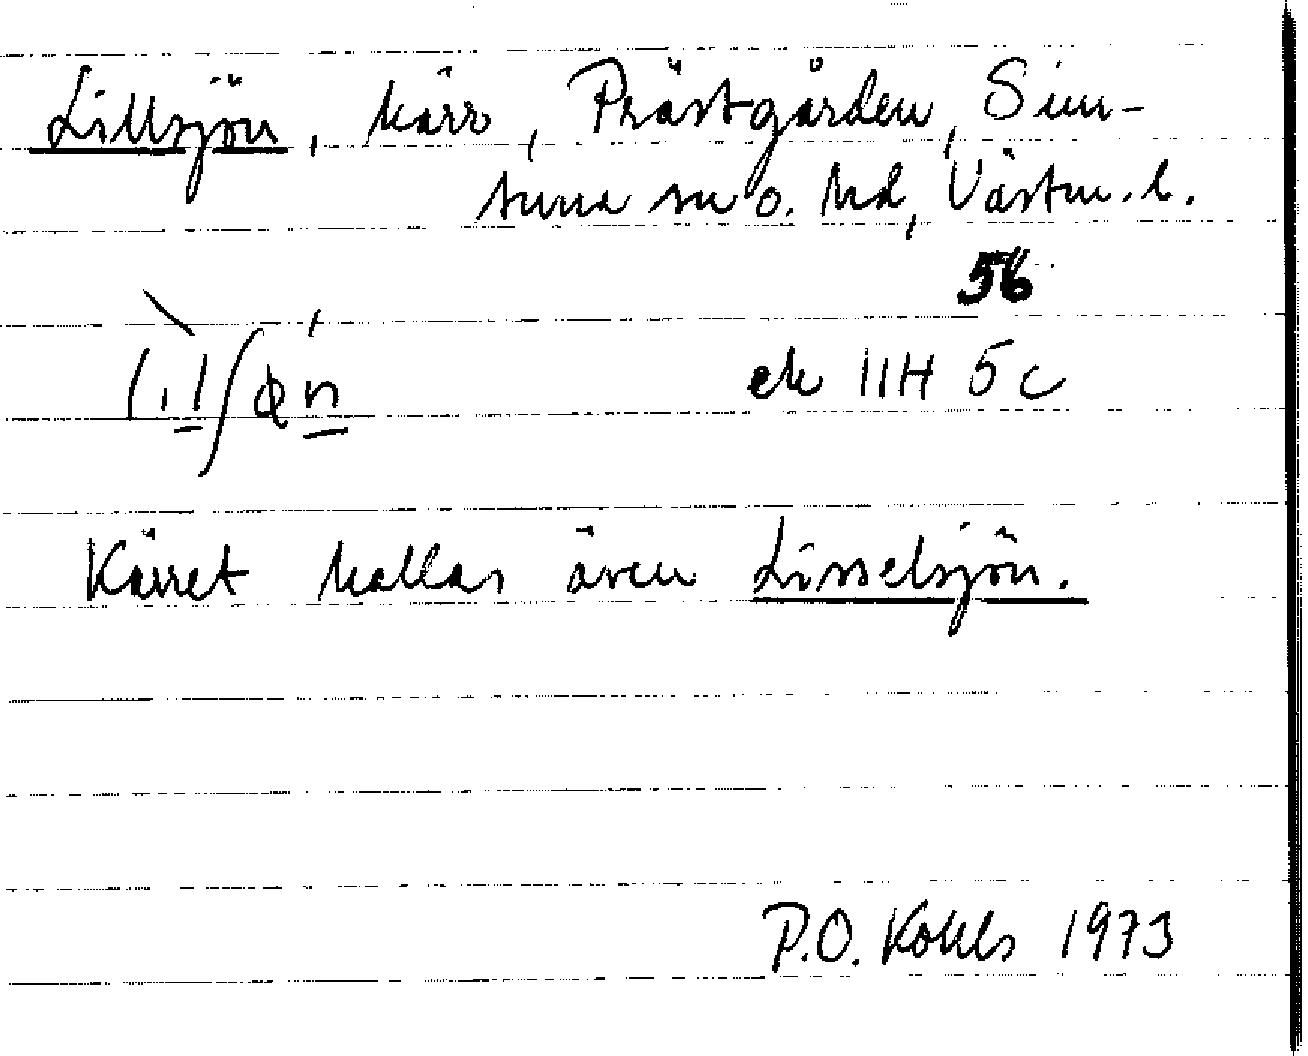 Lillsjön, kärr, Prästgården, Sim-
tuna sn o. hd, Västm. l.
56
ek 11H 5c
Kärret kallas även Lisselsjön.
P.O. Kohls 1973